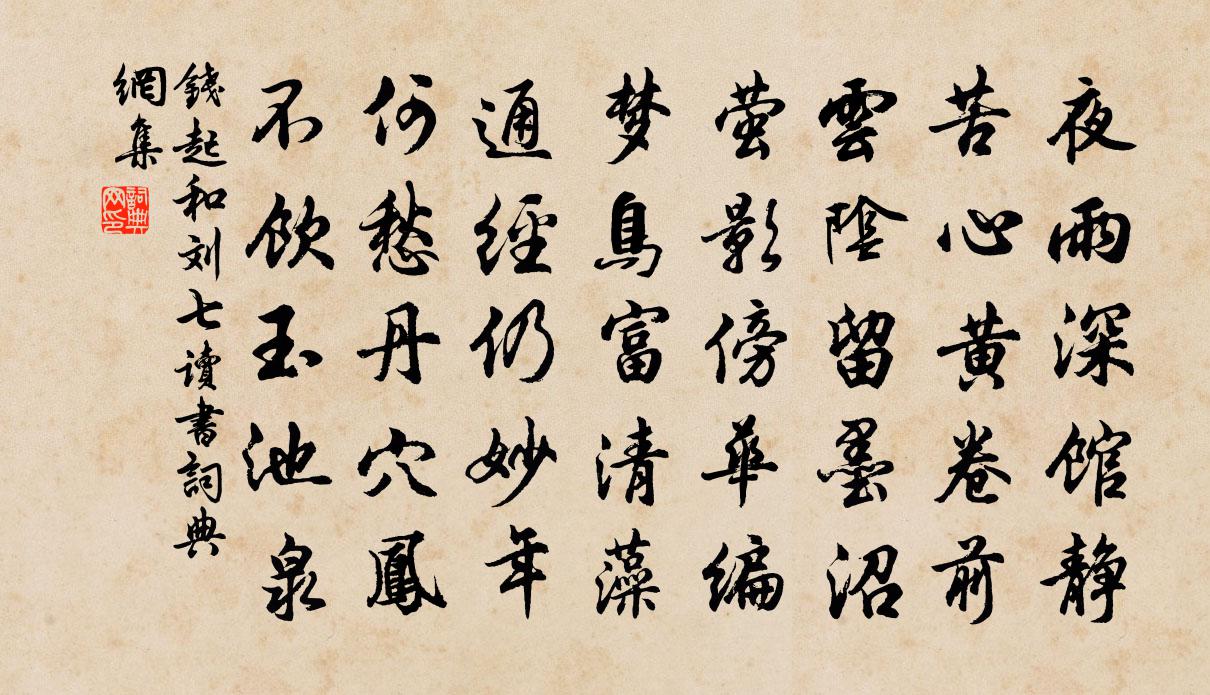 夜雨深馆静
苦心黄卷前
雲陰留墨沼
萤影傍華编
梦鳥富清藻
通經仍妙年
何愁丹穴鳳
不饮玉池泉
錢起和刘七讀書詞典
網集
詞典
网印